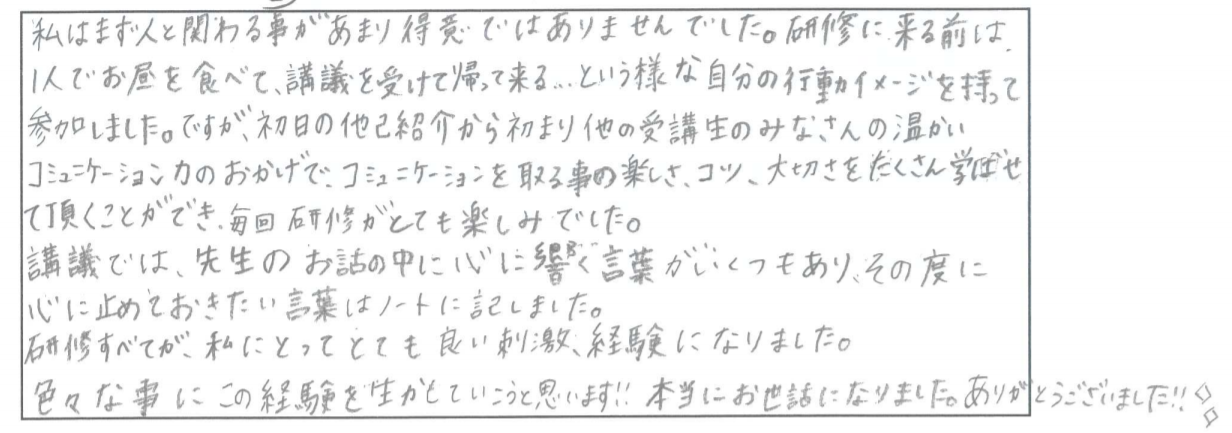 私はまず人と関わる事があまり得意ではありませんでした。研修に来る前は、
1人でお昼を食べて、講義を受けて帰って来る…という様な自分の行動イメージを持って
参加しました。ですが、初日の他己紹介から初まり他の受講生のみなさんの温かい
コミュニケーション力のおかげで、コミュニケーションを取る事の楽しさ、コツ、大切さをたくさん学ばせ
て頂くことができ、毎回研修がとても楽しみでした。
講義では、先生のお話の中に心に響く言葉がいくつもあり、その度に
心に止めておきたい言葉はノートに記しました。
研修すべてが、私にとってとても良い刺激、経験になりました。
色々な事にこの経験を生かしていこうと思います!! 本当にお世話になりました。ありがとうございました!!